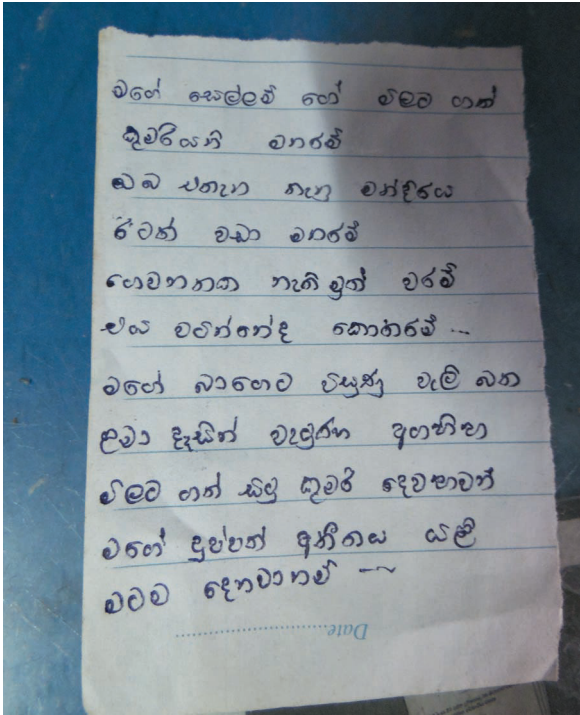 මගේ සෙල්ලම් ගේ මිලට ගත්
කුමරියනි මනරම්
ඔබ එතැන තැනු මන්දිරය
ඊටත් වඩා මනරම්
ගෙවනතක නැති මුත් වරම්
එය වටින්නේද කොතරම් ...
මගේ බාගෙට පිසුණු වැලි බත
ළමා දෑසින් වැටුණ අගහිඟ
මිලට ගත් සිටු කුමරි දෙවඟාවන්
මගේ දුප්පත් අතීතය යළි
මටම දෙනවානම් ~
Date